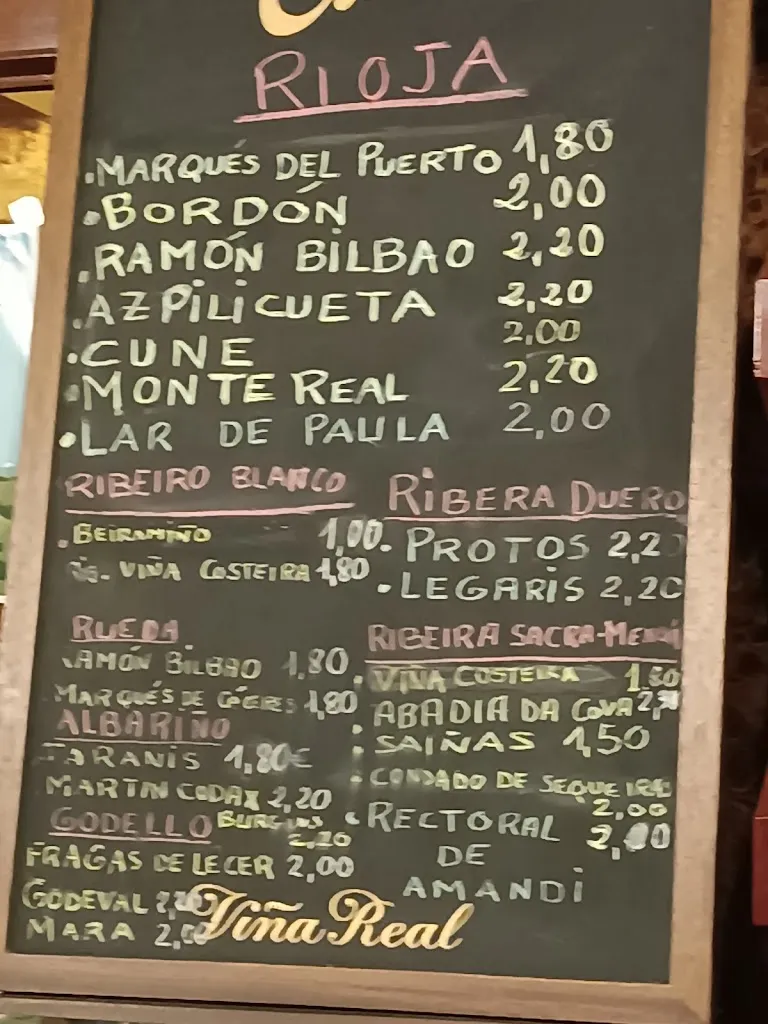 RIOJA
.MARQUÉS DEL PUERTO 1,80
.BORDÓN 2,00
.RAMÓN BILBAO 2,20
.AZPILICUETA 2,20
.CUNE 2,00
.MONTE REAL 2,20
.LAR DE PAULA 2,00
RIBEIRO BLANCO
.BEIRAMIÑO 1,00
VIÑA COSTEIRA 1,80
RIBERA DUERO
.PROTOS 2,20
.LEGARIS 2,20
RUEDA
RAMÓN BILBAO 1,80
MARQUÉS DE CÁCERES 1,80
ALBARIÑO
1,80€
MARTIN CODAX 2,20
2,20
GODELLO
FRAGAS DE LECER 2,00
GODEVAL
MARA
RIBEIRA SACRA-
.VIÑA COSTEIRA
ABADIA DA COVA
.SAIÑAS 1,50
.CONDADO DE
2,00
.RECTORAL
DE
AMANDI
Viña Real